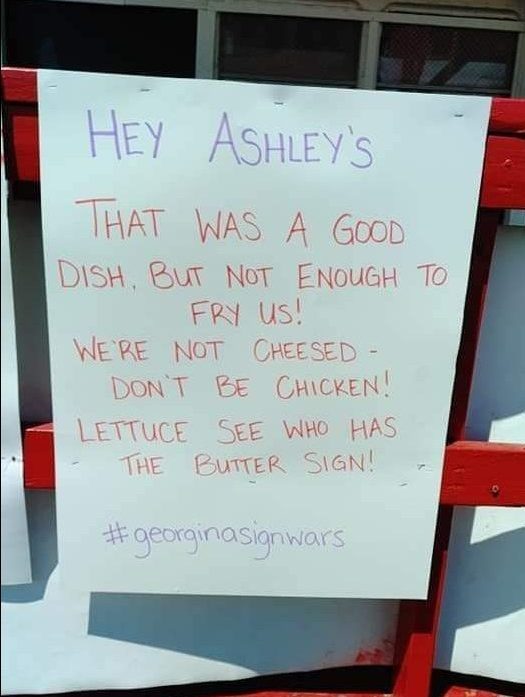 HEY ASHLEY'S
THAT WAS A GOOD
DISH, BUT NOT ENOUGH TO
FRY US!
WE'RE NOT CHEESED -
DON'T BE CHICKEN!
LETTUCE SEE WHO HAS
THE BUTTER SIGN!
#georginasignwars